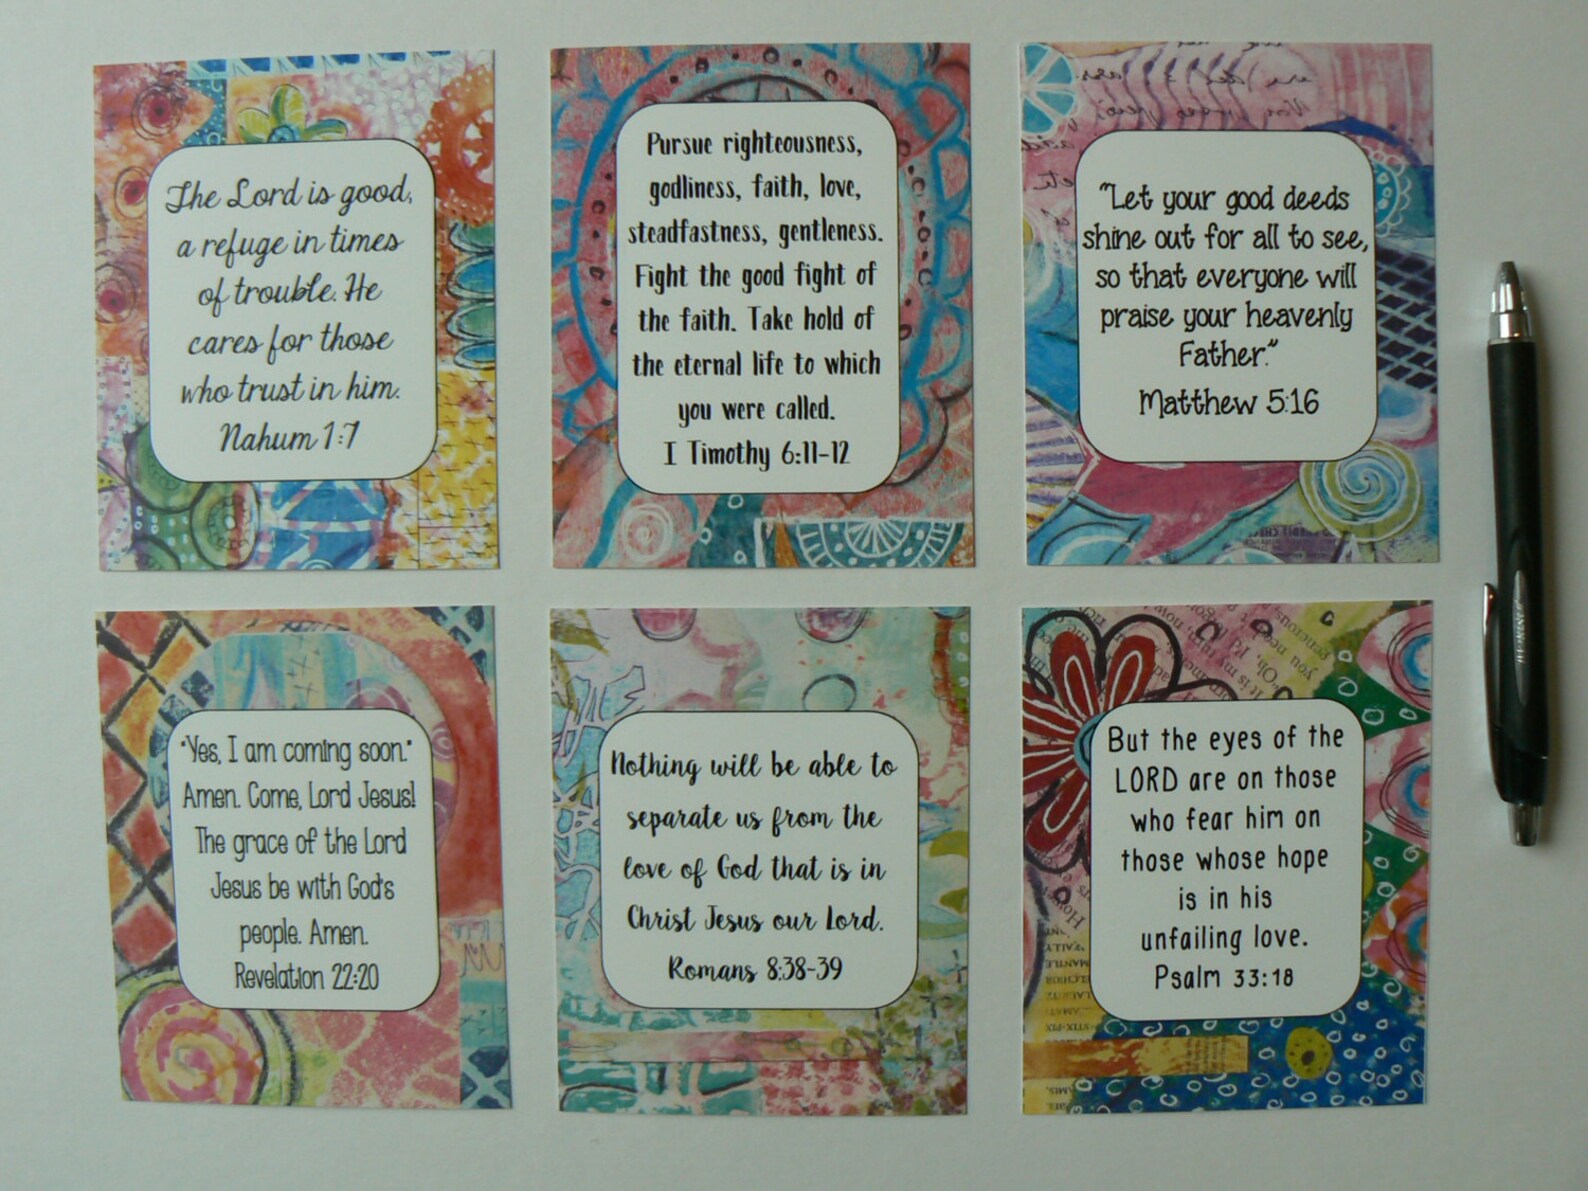 The Lord is good,
a refuge in times
of trouble. He
cares for those
who trust in him.
Nahum 1:7
Pursue righteousness,
godliness, faith, love,
steadfastness, gentleness.
Fight the good fight of
the faith. Take hold of
the eternal life to which
you were called.
I Timothy 6:11-12
"Let your good deeds
shine out for all to see,
so that everyone will
praise your heavenly
Father."
Matthew 5:16
"Yes, I am coming soon."
Amen. Come, Lord Jesus!
The grace of the Lord
Jesus be with God's
people. Amen.
Revelation 22:20
Nothing will be able to
separate us from the
love of God that is in
Christ Jesus our Lord.
Romans 8:38-39
But the eyes of the
LORD are on those
who fear him on
those whose hope
is in his
unfailing love.
Psalm 33:18